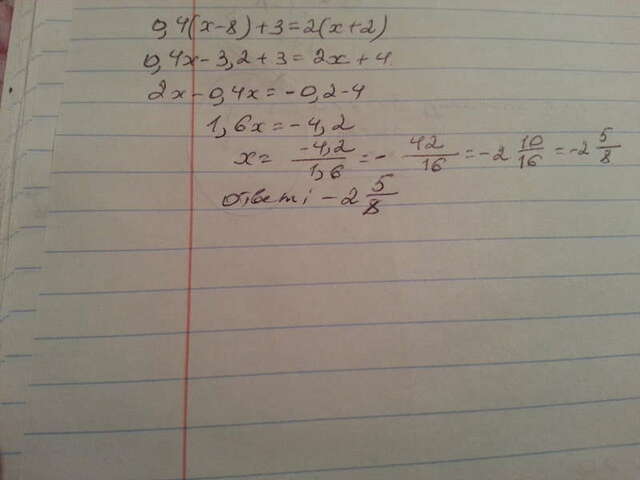 0,4(x-8)+3=2(x+2)
0,4x-3,2+3=2x+4
2x-0,4x=-0,2-4
1,6x=-4,2
x= -4,2/1,6 =- 42/16 =-2 10/16 =-2 5/8
ответ: -2 5/8